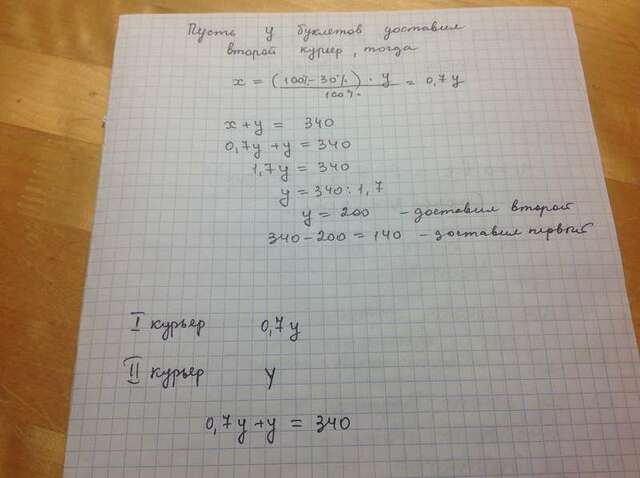 Пусть y буклетов доставил
второй курьер, тогда
x = (100%-30%) · y / 100% = 0,7y
x+y = 340
0,7y + y = 340
1,7y = 340
y = 340 : 1,7
y = 200 - доставил второй
340 - 200 = 140 - доставил первый
I курьер 0,7y
II курьер y
0,7y + y = 340